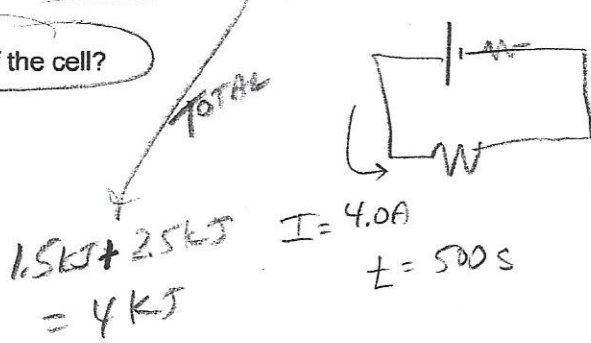 the cell?
TOTAL
1.5kJ + 2.5kJ
= 4 kJ
I = 4.0A
t = 500 s